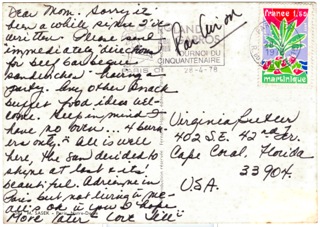 Dear Mom. Sorry it
been a while since I've
written. Please send
immediately directions
for beef barbecue
sandwiches having a
party. Any other Brach
buffet food ideas wel-
come. Keeping mind I
have no oven... 4 burn-
ers only." All is well
here, the sun decided to
shine at last & its'
beautiful. Adrienne in
Paris but not living in
all is ok w/ her I hope
More later Love
Par Avion
TOURNOI DU
CINQUANTENAIRE
28-4-78
france 1,50
martinique
Virginia
402 S.E. 42nd Ter.
Cape Coral, Florida
33904.
U.S.A.